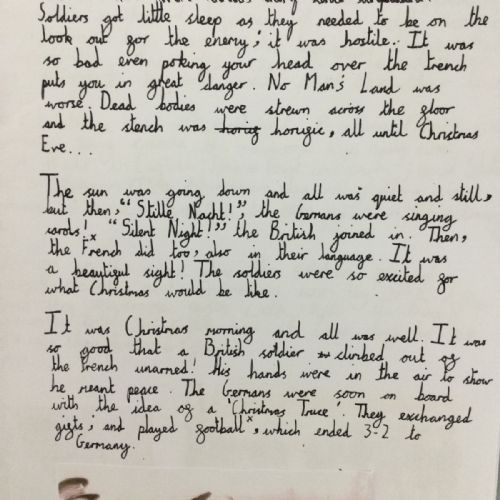 Soldiers got little sleep as they needed to be on the
look out for the enemy; it was hostile. It was
so bad even poking your head over the trench
puts you in great danger. No Man's Land was
worse. Dead bodies were strewn across the floor
and the stench was horrific, all until Christmas
Eve...
The sun was going down and all was quiet and still,
but then, "Stille Nacht!", the Germans were singing
carols! "Silent Night!", the British joined in. Then,
the French did too, also in their language. It was
a beautiful sight! The soldiers were so excited for
what Christmas would be like.
It was Christmas morning and all was well. It was
so good that a British soldier climbed out of
the trench unarmed! His hands were in the air to show
he meant peace. The Germans were soon on board
with the idea of a 'Christmas Truce'. They exchanged
gifts; and played football*, which ended 3-2 to
Germany.